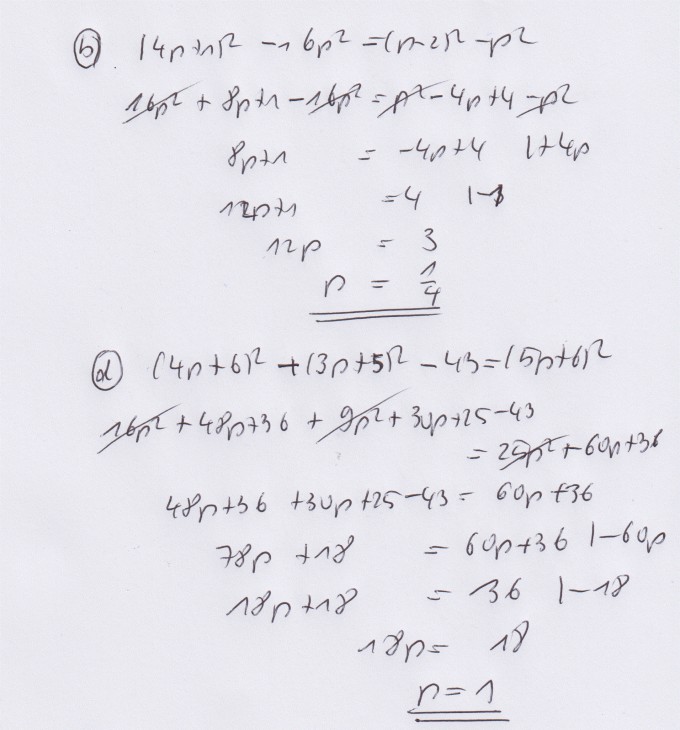 b) (4p+1)² - 16p² = (p-2)² - p²
16p² + 8p+1 - 16p² = p² - 4p+4 - p²
8p+1 = -4p+4 |+4p
12p+1 = 4 |-1
12p = 3
p = 1/4
d) (4p+6)² + (3p+5)² - 43 = (5p+6)²
16p² + 48p+36 + 9p² + 30p+25 - 43
= 25p² + 60p+36
48p+36 + 30p+25 - 43 = 60p+36
78p + 18 = 60p+36 |-60p
18p+18 = 36 |-18
18p = 18
p = 1